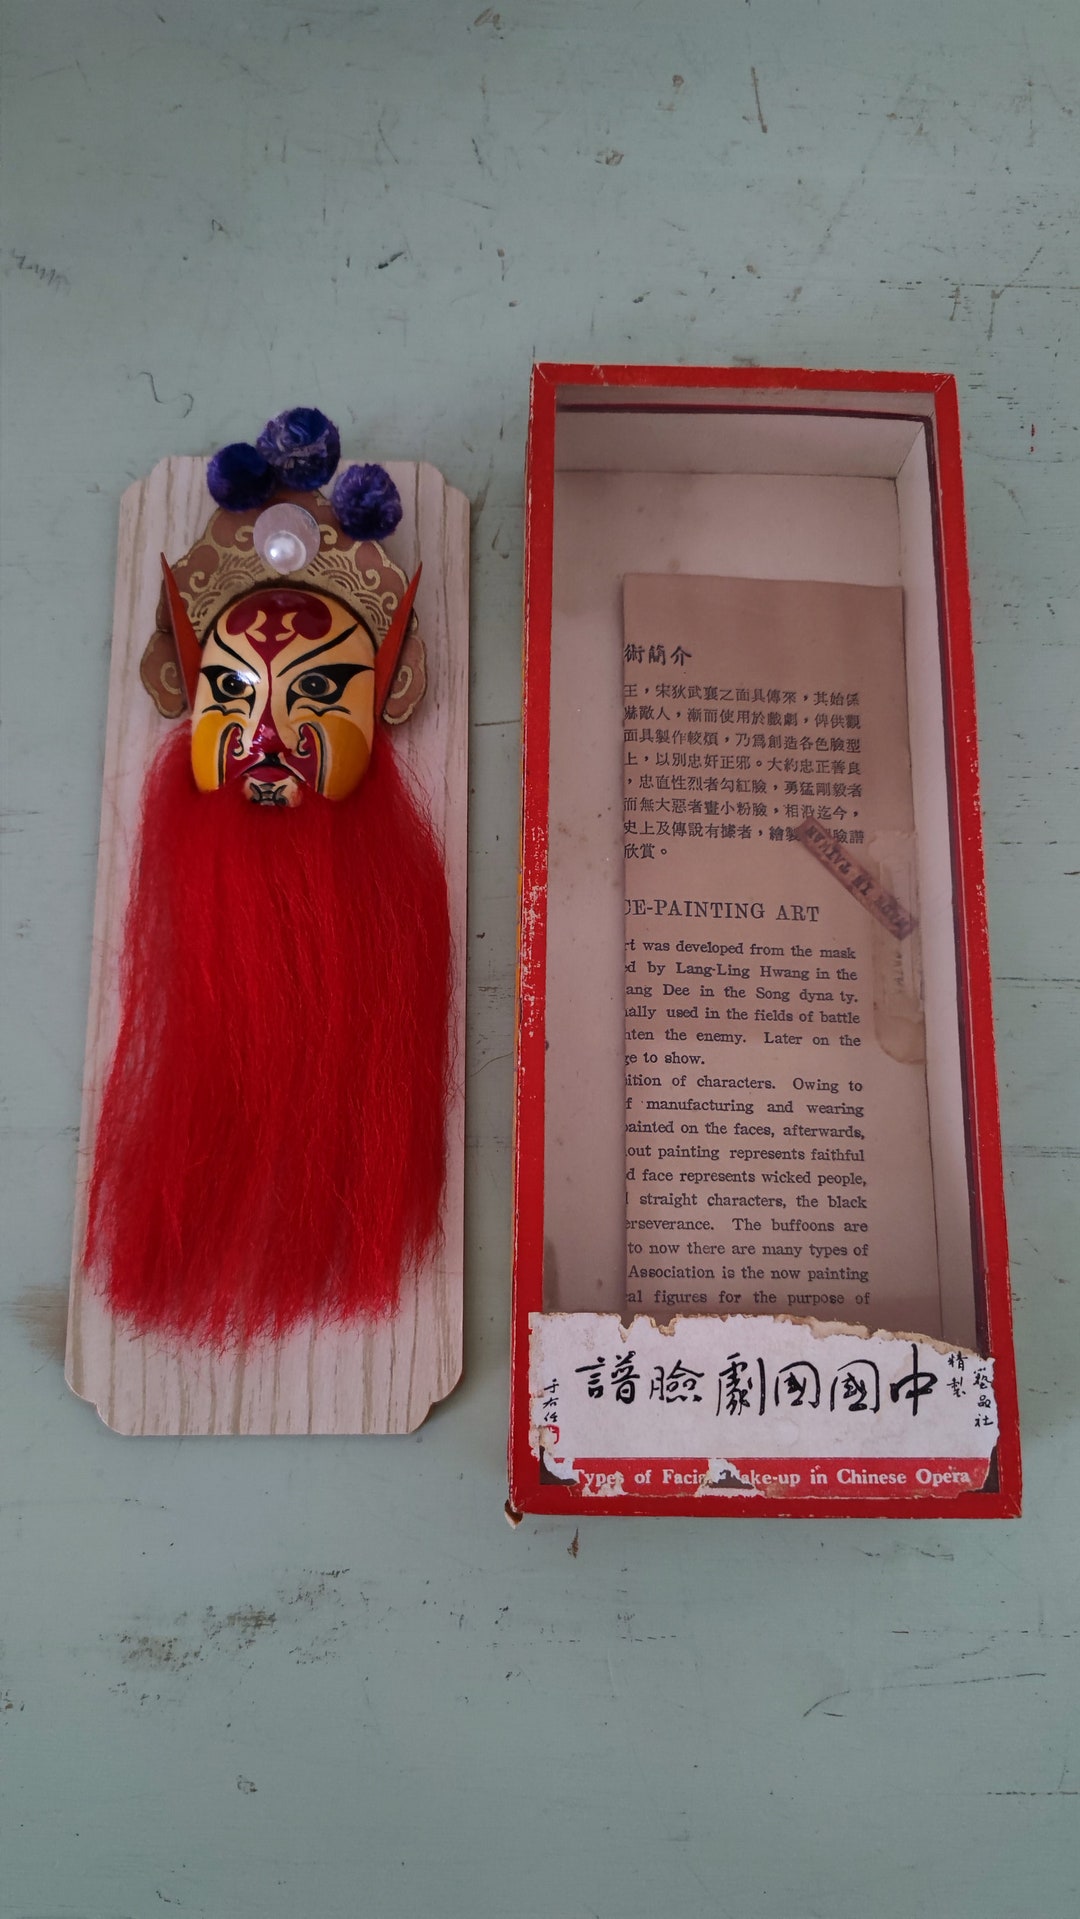 術簡介
王，宋狄武襄之面具傳來，其始係
嚇敵人，漸而使用於戲劇，俾供觀
面具製作較煩，乃爲創造各色臉型
上，以別忠奸正邪。大約忠正善良
，忠直性烈者勾紅臉，勇猛剛毅者
而無大惡者畫小粉臉，相沿迄今，
史上及傳說有據者，繪製 臉譜
欣賞。
MADE IN TAIWAN
CE-PAINTING ART
rt was developed from the mask
ed by Lang-Ling Hwang in the
ang Dee in the Song dyna ty.
nally used in the fields of battle
hten the enemy. Later on the
ge to show.
ition of characters. Owing to
f manufacturing and wearing
painted on the faces, afterwards,
out painting represents faithful
d face represents wicked people,
straight characters, the black
erseverance. The buffoons are
to now there are many types of
Association is the now painting
cal figures for the purpose of
中國國劇臉譜
藝品社
精製
于右任
Types of Facia ake-up in Chinese Opera